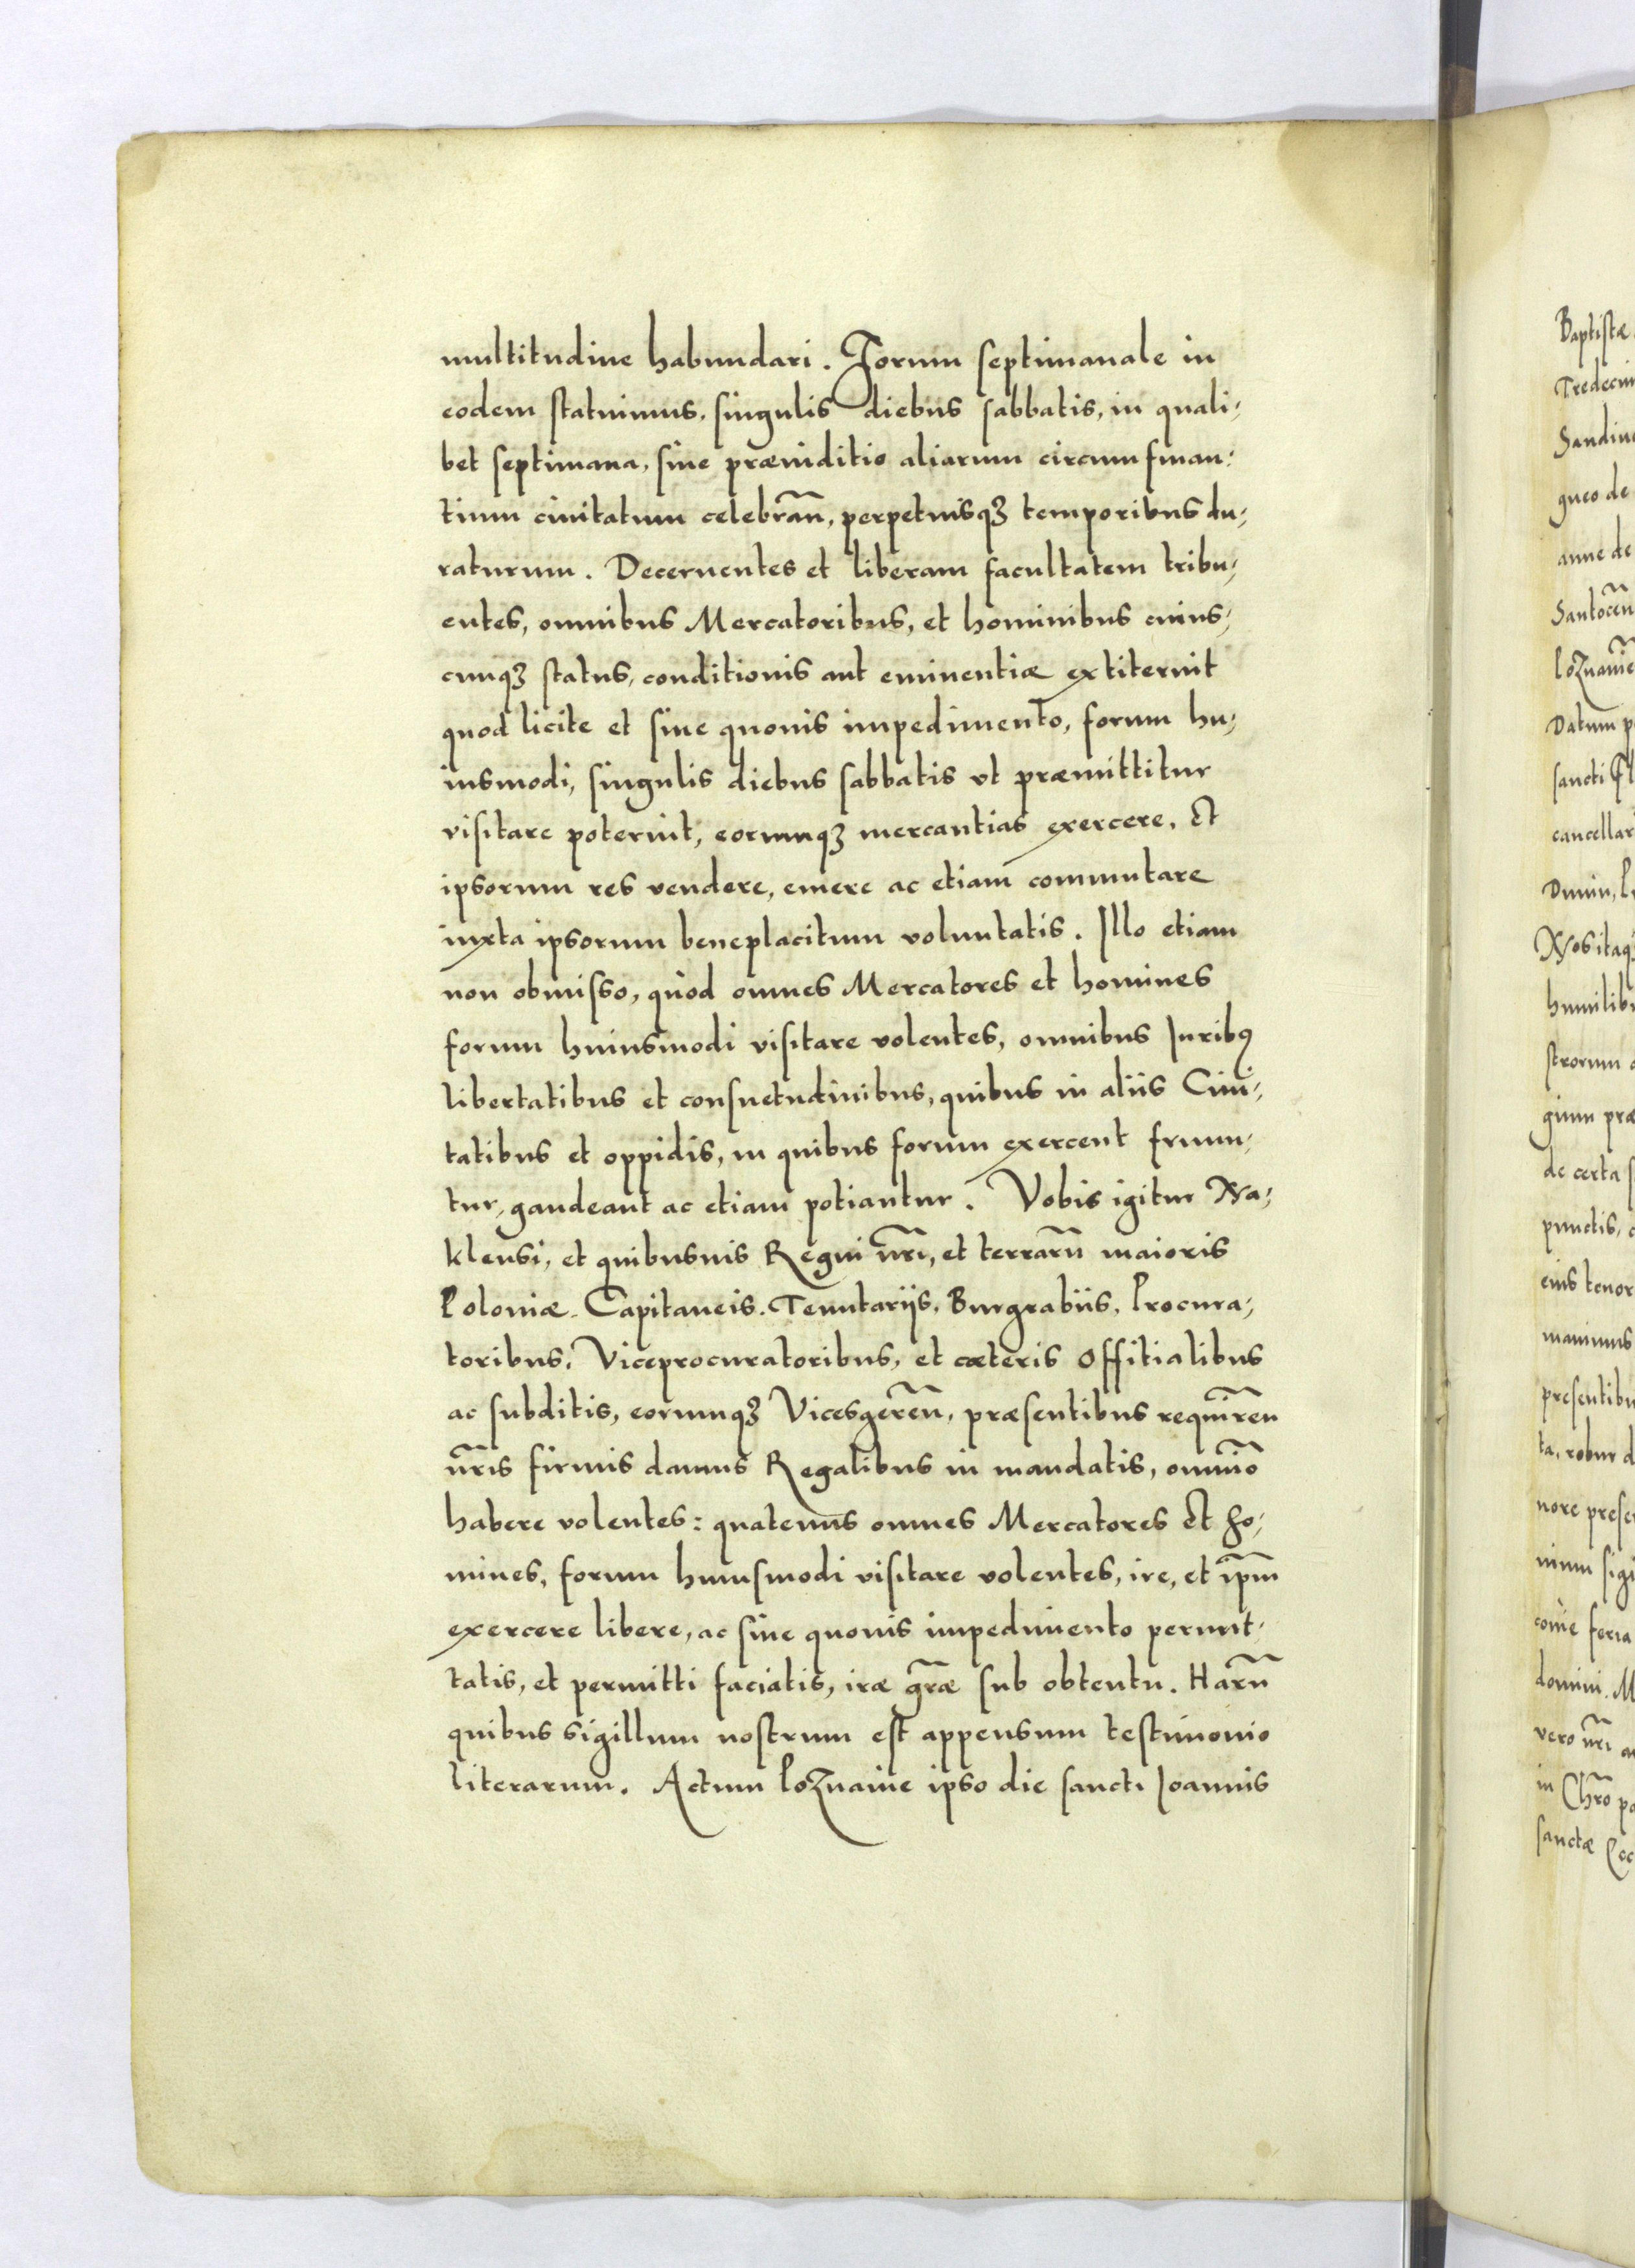 multitudine habundari. Forum septimanale in
eodem statuimus, singulis diebus sabbatis, in quali⸗
bet septimana, sine præiuditio aliarum circumsman⸗
tium ciuitatum celebrañ, perpetuisqꝫ temporibus du⸗
raturum. Decernentes et liberam facultatem tribu⸗
entes, omnibus Mercatoribus, et hominibus cuius⸗
cunqꝫ status, conditionis aut eminentiæ extiterint
quod licite et sine quouis impedimento, forum hu⸗
iusmodi, singulis diebus sabbatis vt præmittitur
visitare poterint, eorumqꝫ mercantias exercere, Et
ipsorum res vendere, emere ac etiam commutare
iuxta ipsorum beneplacitum voluntatis. Illo etiam
non obmisso, quòd omnes Mercatores et homines
forum huiusmodi visitare volentes, omnibus Juribꝰ
libertatibus et consuetudinibus, quibus in aliis Ciui⸗
tatibus et oppidis, in quibus forum exercent fruun⸗
tur, gaudeant ac etiam potiantur. Vobis igitur Na⸗
klensi, et quibusuis Regni nr̃i, et terrarũ maioris
Poloniæ. Capitaneis. Tenutariis, Burgrabiis, Procura⸗
toribus, Viceprocuratoribus, et cæteris Offitialibus
ac subditis, eorumqꝫ Vicesgereñ, præsentibus requireñ
nr̃is firmis damus Regalibus in mandatis, omnĩo
habere volentes: quatenus omnes Mercatores Et ho⸗
mines, forum huiusmodi visitare volentes, ire, et ip̃m
exercere libere, ac sine quouis impedimento permit⸗
tatis, et permitti faciatis, iræ gr̃æ sub obtentu. Harũ
quibus sigillum nostrum est appensum testimonio
literarum. Actum Poznaniæ ipso die sancti Joannis
Baptistæ
anne de
Datum
sancti
cancellar
Nos itaqꝫ
strorum
gium præ
de certa
punctis,
eius tenor
ta, robur
nore prese
feria
domini. M
vero nr̃i
in Chr̃o
sanctæ